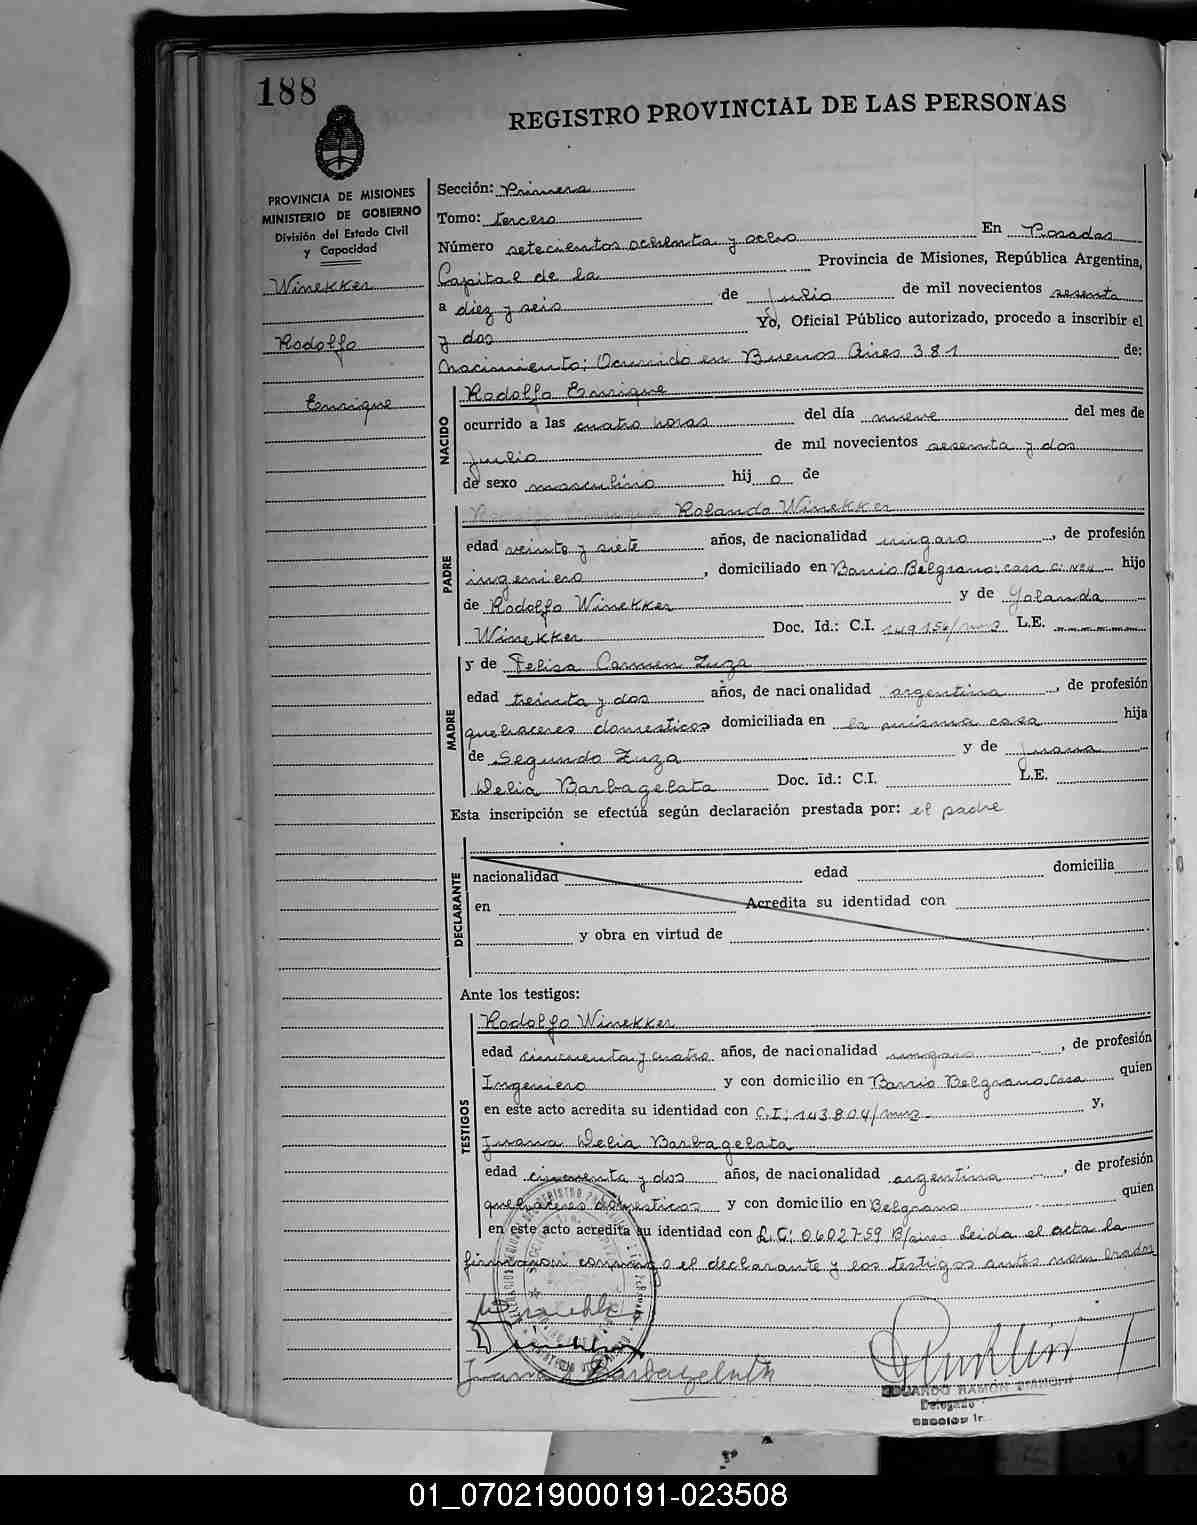 188
REGISTRO PROVINCIAL DE LAS PERSONAS
PROVINCIA DE MISIONES
MINISTERIO DE GOBIERNO
División del Estado Civil
y Capacidad
Winekker
Rodolfo
Enrique
Sección: Primera
Tomo: tercero
Número setecientos ochenta y ocho En Posadas
Capital de la Provincia de Misiones, República Argentina,
a diez y seis de Julio de mil novecientos sesenta
y dos Yo, Oficial Público autorizado, procedo a inscribir el
Nacimiento: Ocurrido en Buenos Aires 381 de:
NACIDO
Rodolfo Enrique
ocurrido a las cuatro horas del día nueve del mes de
Julio de mil novecientos sesenta y dos
de sexo masculino hij o de
PADRE
Rolando Winekker
edad veinte y siete años, de nacionalidad ungaro, de profesión
ingeniero, domiciliado en Barrio Belgrano: casa hijo
de Rodolfo Winekker y de Yolanda
Winekker Doc. Id.: C.I. L.E.
MADRE
y de Felisa Carmen Zuza
edad treinta y dos años, de nacionalidad argentina, de profesión
quehaceres domesticos domiciliada en la misma casa hija
de Segundo Zuza y de Juana
Delia Barbagelata Doc. id.: C.I. L.E.
Esta inscripción se efectúa según declaración prestada por: el padre
DECLARANTE
nacionalidad edad domicilia
en Acredita su identidad con
y obra en virtud de
Ante los testigos:
TESTIGOS
Rodolfo Winekker
edad cincuenta y cuatro años, de nacionalidad ungaro, de profesión
Ingeniero y con domicilio en Barrio Belgrano, casa quien
en este acto acredita su identidad con C.I: 143.804/mnz y,
Juana Delia Barbagelata
edad cincuenta y dos años, de nacionalidad argentina, de profesión
quehaceres domesticos y con domicilio en Belgrano quien
en este acto acredita su identidad con L.C: 06027-59 B/aires Leida el acta la
firmaron conmigo el declarante y los testigos antes nombrados
Juana Barbagelata
EDUARDO RAMÓN BIANCHI
Delegado
SECCION 1r.
01_070219000191-023508